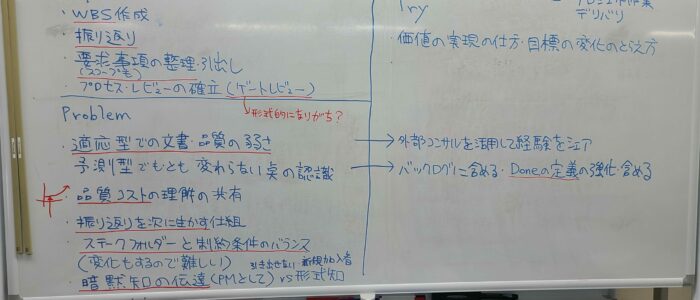 ・WBS作成
・振り返り
・要求事項の整理・引出し
(スコープも)
・プロセス・レビューの確立(ゲートレビュー)
形式的になりがち?
Problem
・適応型での文書・品質の弱さ
予測型でも・とも変わらない点の認識
・品質コストの理解の共有
・振り返りを次に生かす仕組
・ステークフォルダーと制約条件のバランス
(変化もするので難しい) 引き出せない・新規加入者
・暗黙知の伝達(PMとして) vs 形式知
Try
デリバリ
・価値の実現の仕方・目標の変化のとらえ方
→外部コンサルを活用して経験をシェア
→バックログに含める・Doneの定義の強化・含める